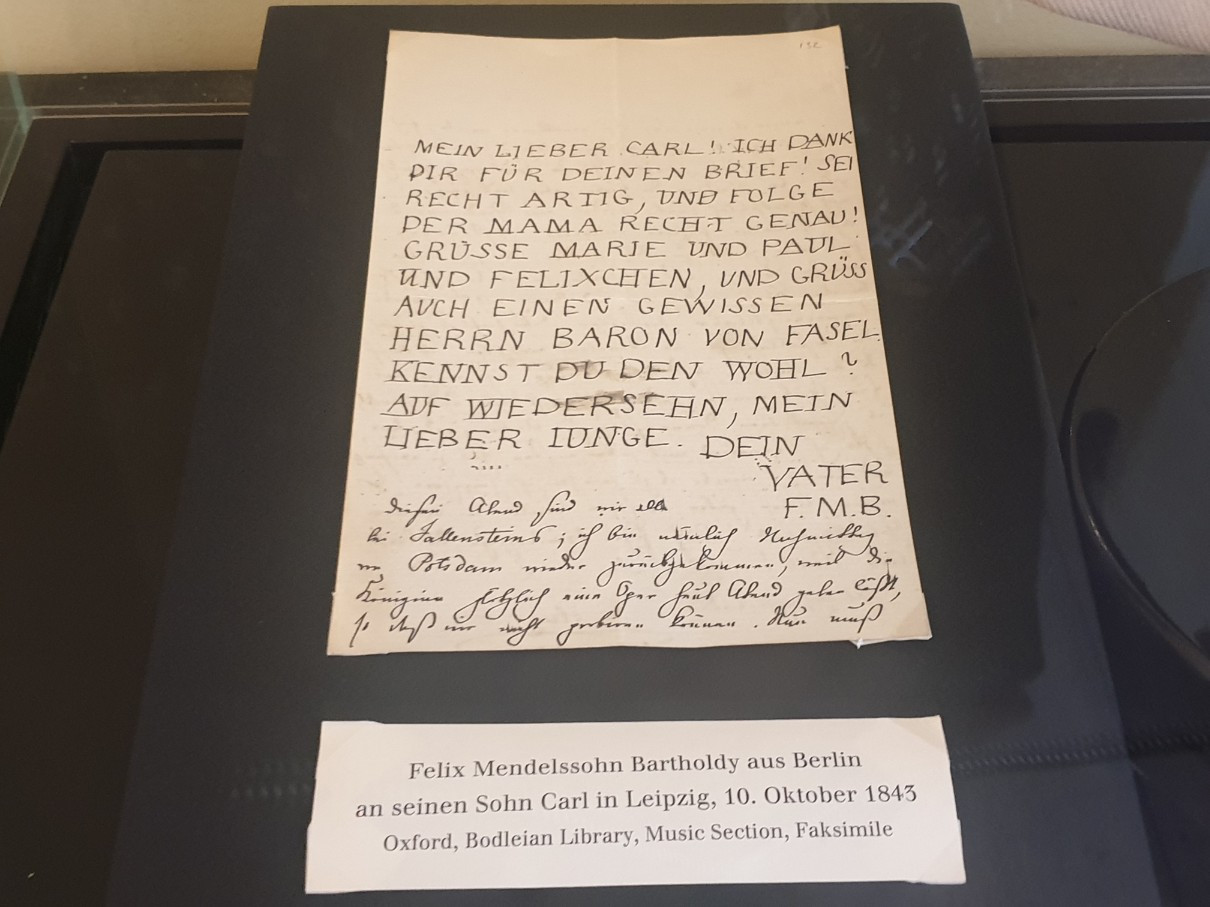 132
MEIN LIEBER CARL! ICH DANK
DIR FÜR DEINEN BRIEF! SEI
RECHT ARTIG, UND FOLGE
DER MAMA RECHT GENAU!
GRÜSSE MARIE UND PAUL
UND FELIXCHEN, UND GRÜSS
AUCH EINEN GEWISSEN
HERRN BARON VON FASEL.
KENNST DU DEN WOHL?
AUF WIEDERSEHN, MEIN
LIEBER IUNGE. DEIN
VATER
F.M.B.
Abend sind wir
bei Fallensteins; ich bin nämlich Nachmittag
Potsdam wieder zurückgekommen, weil die
Königinn plötzlich eine Oper heut Abend geben läßt,
so daß wir nicht probiren können. Nun muß
Felix Mendelssohn Bartholdy aus Berlin
an seinen Sohn Carl in Leipzig, 10. Oktober 1843
Oxford, Bodleian Library, Music Section, Faksimile